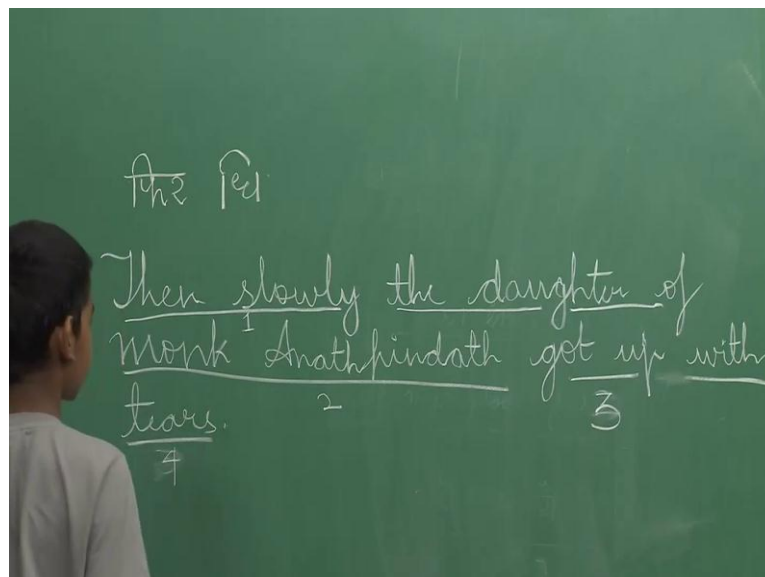 फिर
Then slowly the daughter of
1
monk Anathpindath got up with
2 3
tears.
4